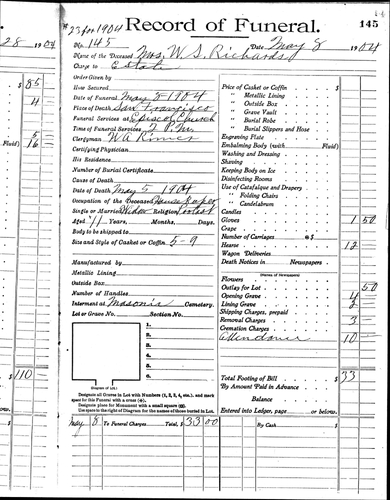 * 23 for 1904
Record of Funeral. 145
28 1904
No. 145 Date May 8 1904
Name of the Deceased Mrs. W. S. Richards
Charge to Estate
Order Given by
How Secured
Date of Funeral May 8 1904
Place of Death San Francisco
Funeral Services at Episco Church
Time of Funeral Services 2 P.M.
Clergyman W A Rimer
Certifying Physician
His Residence
Number of Burial Certificate
Cause of Death
Date of Death May 5 1904
Occupation of the Deceased House Keeper
Single or Married Widow Religion Protest
Aged 11 Years, Months, Days.
Body to be shipped to
Size and Style of Casket or Coffin 5-9
Manufactured by
Metallic Lining
Outside Box
Number of Handles
Interment at Masonic Cemetery.
Lot or Grave No. Section No.
1.
2.
3.
4.
5.
6.
(Diagram of Lot.)
Designate all Graves in Lot with Numbers (1, 2, 3, 4, etc.), and mark
space for this Funeral with a cross (+).
Designate place for Monument with a small square (□).
Use space to the right of Diagram for the names of those buried in Lot.
May 8 To Funeral Charges Total, $ 33 00
Price of Casket or Coffin $
" Metallic Lining
" Outside Box
" Grave Vault
" Burial Robe
" Burial Slippers and Hose
Engraving Plate
Embalming Body (with Fluid)
Washing and Dressing
Shaving
Keeping Body on Ice
Disinfecting Rooms
Use of Catafalque and Drapery
" Folding Chairs
" Candelabrum
Candles
Gloves 1 50
Crape
Number of Carriages @$
Hearse 12
Wagon Deliveries
Death Notices in Newspapers
(Names of Newspapers)
Flowers
Outlay for Lot 50
Opening Grave 4
Lining Grave 2
Shipping Charges, prepaid
Removal Charges 3
Cremation Charges
Attendance 10
Total Footing of Bill $ 33
By Amount Paid in Advance
Balance
Entered into Ledger, page or below.
By Cash $
$ 85
4
5
Fluid) 16
$ 110